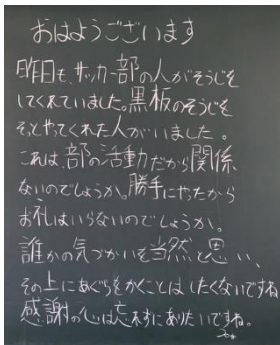 おはようございます
昨日も、サッカー部の人がそうじを
してくれていました。黒板のそうじを
そっとやってくれた人がいました。
これは、部の活動だから関係
ないのでしょうか。勝手にやったから
お礼はいらないのでしょうか。
誰かの気づかいを当然と思い、
その上にあぐらをかくことはしたくないですね
感謝の心は忘れずにありたいですね。